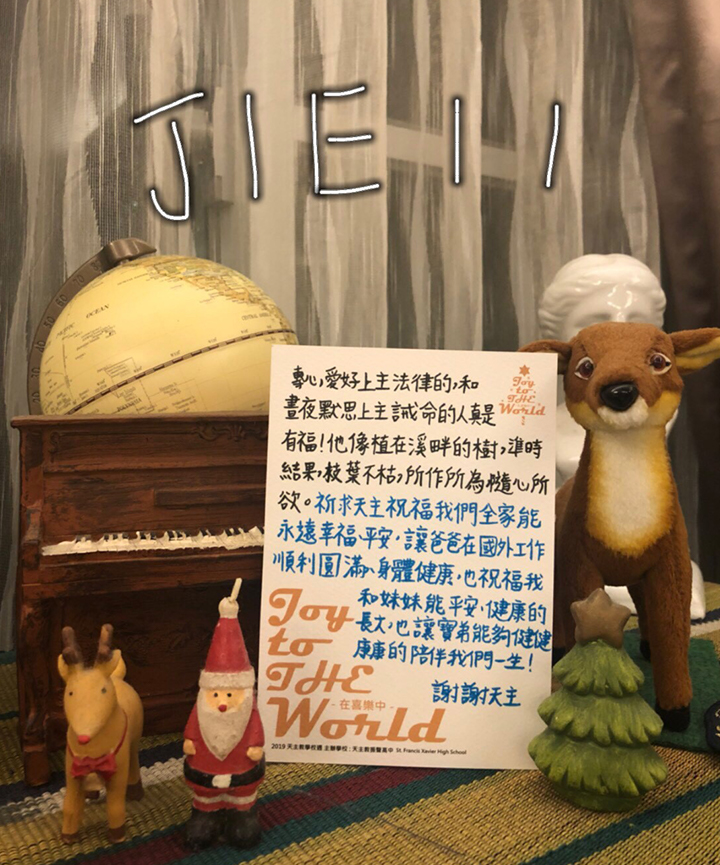 JIE11
OCEAN
專心,愛好上主法律的,和
晝夜默思上主誡命的人真是
有福!他像植在溪畔的樹,準時
結果,枝葉不枯,所作所為隨心所
欲。祈求天主祝福我們全家能
永遠幸福、平安,讓爸爸在國外工作
順利圓滿、身體健康,也祝福我
和妹妹能平安、健康的
長大,也讓寶弟能夠健健
康康的陪伴我們一生!
謝謝天主
Joy
to
THE
World
Joy
to
THE
- 在喜樂中 -
World
2019 天主教學校週 主辦學校:天主教振聲高中 St. Francis Xavier High School